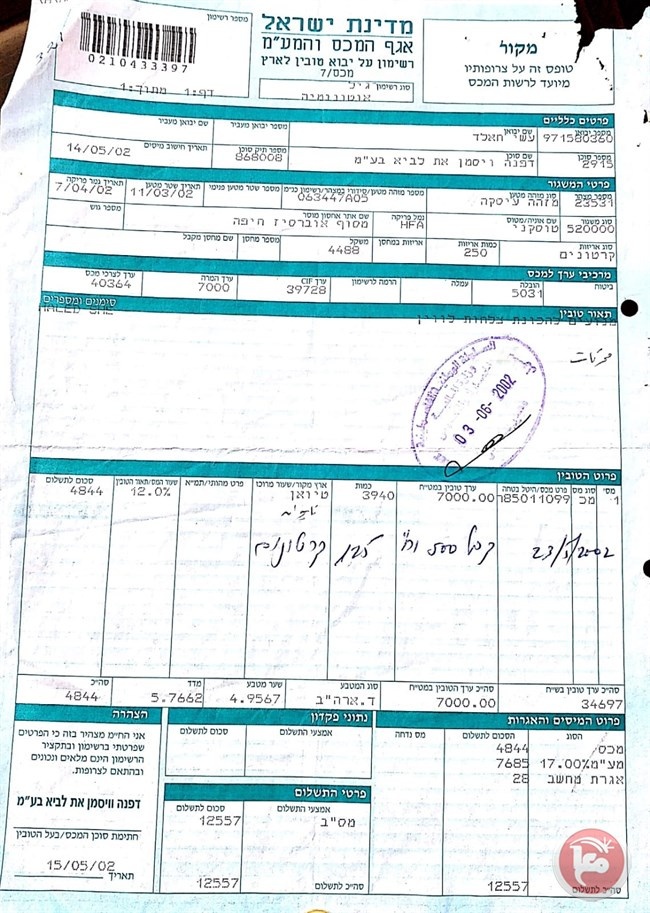 מדינת ישראל
אגף המכס והמע"מ
רשימון על יבוא טובין לארץ
מכס/7
סוג רשימון
אוטונומיה
מקור
טופס זה על צרופותיו
מיועד לרשות המכס
מספר רשימון
0210433397
דף: 1 מתוך: 1
פרטים כלליים
מספר יבואן שם יבואן מספר יבואן מעביר שם יבואן מעביר
971580360 עשי חאלד
מספר סוכן שם סוכן מספר תיק סוכן תאריך חישוב מיסים
2915 דפנה ויסמן את לביא בע"מ 868008 14/05/02
פרטי המשגור
מספר מצהר סוג מוהה מטען מספר מוהה מטען/סידורי במצהר/רשימון כנ"מ מספר שטר מטען פנימי תאריך שטר מטען תאריך גמר פריקה
23531 מזהה עיסקה 063447A05 11/03/02 7/04/02
סוג משגור שם אוניה/מטוס נמל פריקה שם אתר אחסון מוסר מספר גוש
520000 טוסקני HFA מסוף אוברסיז חיפה
סוג אריזות כמות אריזות אריזות במחסן משקל מספר מחסן שם מחסן מקבל
קרטונים 250 4488
מרכיבי ערך למכס
ביטוח הובלה עמלה הרמה לרשימון ערך CIF ערך המרה ערך לצרכי מכס
5031 39728 7000 40364
תאור טובין סימנים ומספרים
03-06-2002
פרוט הטובין
מס' סוג מס פרט מכס/היטל בטחה ערך טובין במט"ח כמות ארץ מקור/שעור מרוכז פרט מהותי/תמ"א שעור המס/תאור הטובין סכום לתשלום
1 מכ 85011099 7000.00 3940 טיואן 12.0% 4844
23/5/2002 קרטונים
סה"כ ערך טובין בש"ח סה"כ ערך הטובין במט"ח סוג המטבע שער מטבע מדד סה"כ
34697 7000.00 ד.ארה"ב 4.9567 5.7662 4844
פרוט המיסים והאגרות
הסוג הסכום לתשלום מס נדחה
מכס 4844
מע"מ 17.00% 7685
אגרת מחשב 28
סה"כ לתשלום 12557
נתוני פקדון
אמצעי תשלום סכום לתשלום
פרטי התשלום
אמצעי התשלום סכום לתשלום
מס"ב 12557
סה"כ לתשלום 12557
הצהרה
אני החי"מ מצהיר בזה כי הפרטים
שפרטתי ברשימון ובתקציר
הרשימון הינם מלאים ונכונים
ובהתאם לצרופות.
דפנה וויסמן את לביא בע"מ
חתימת סוכן המכס/בעל הטובין
15/05/02
תאריך